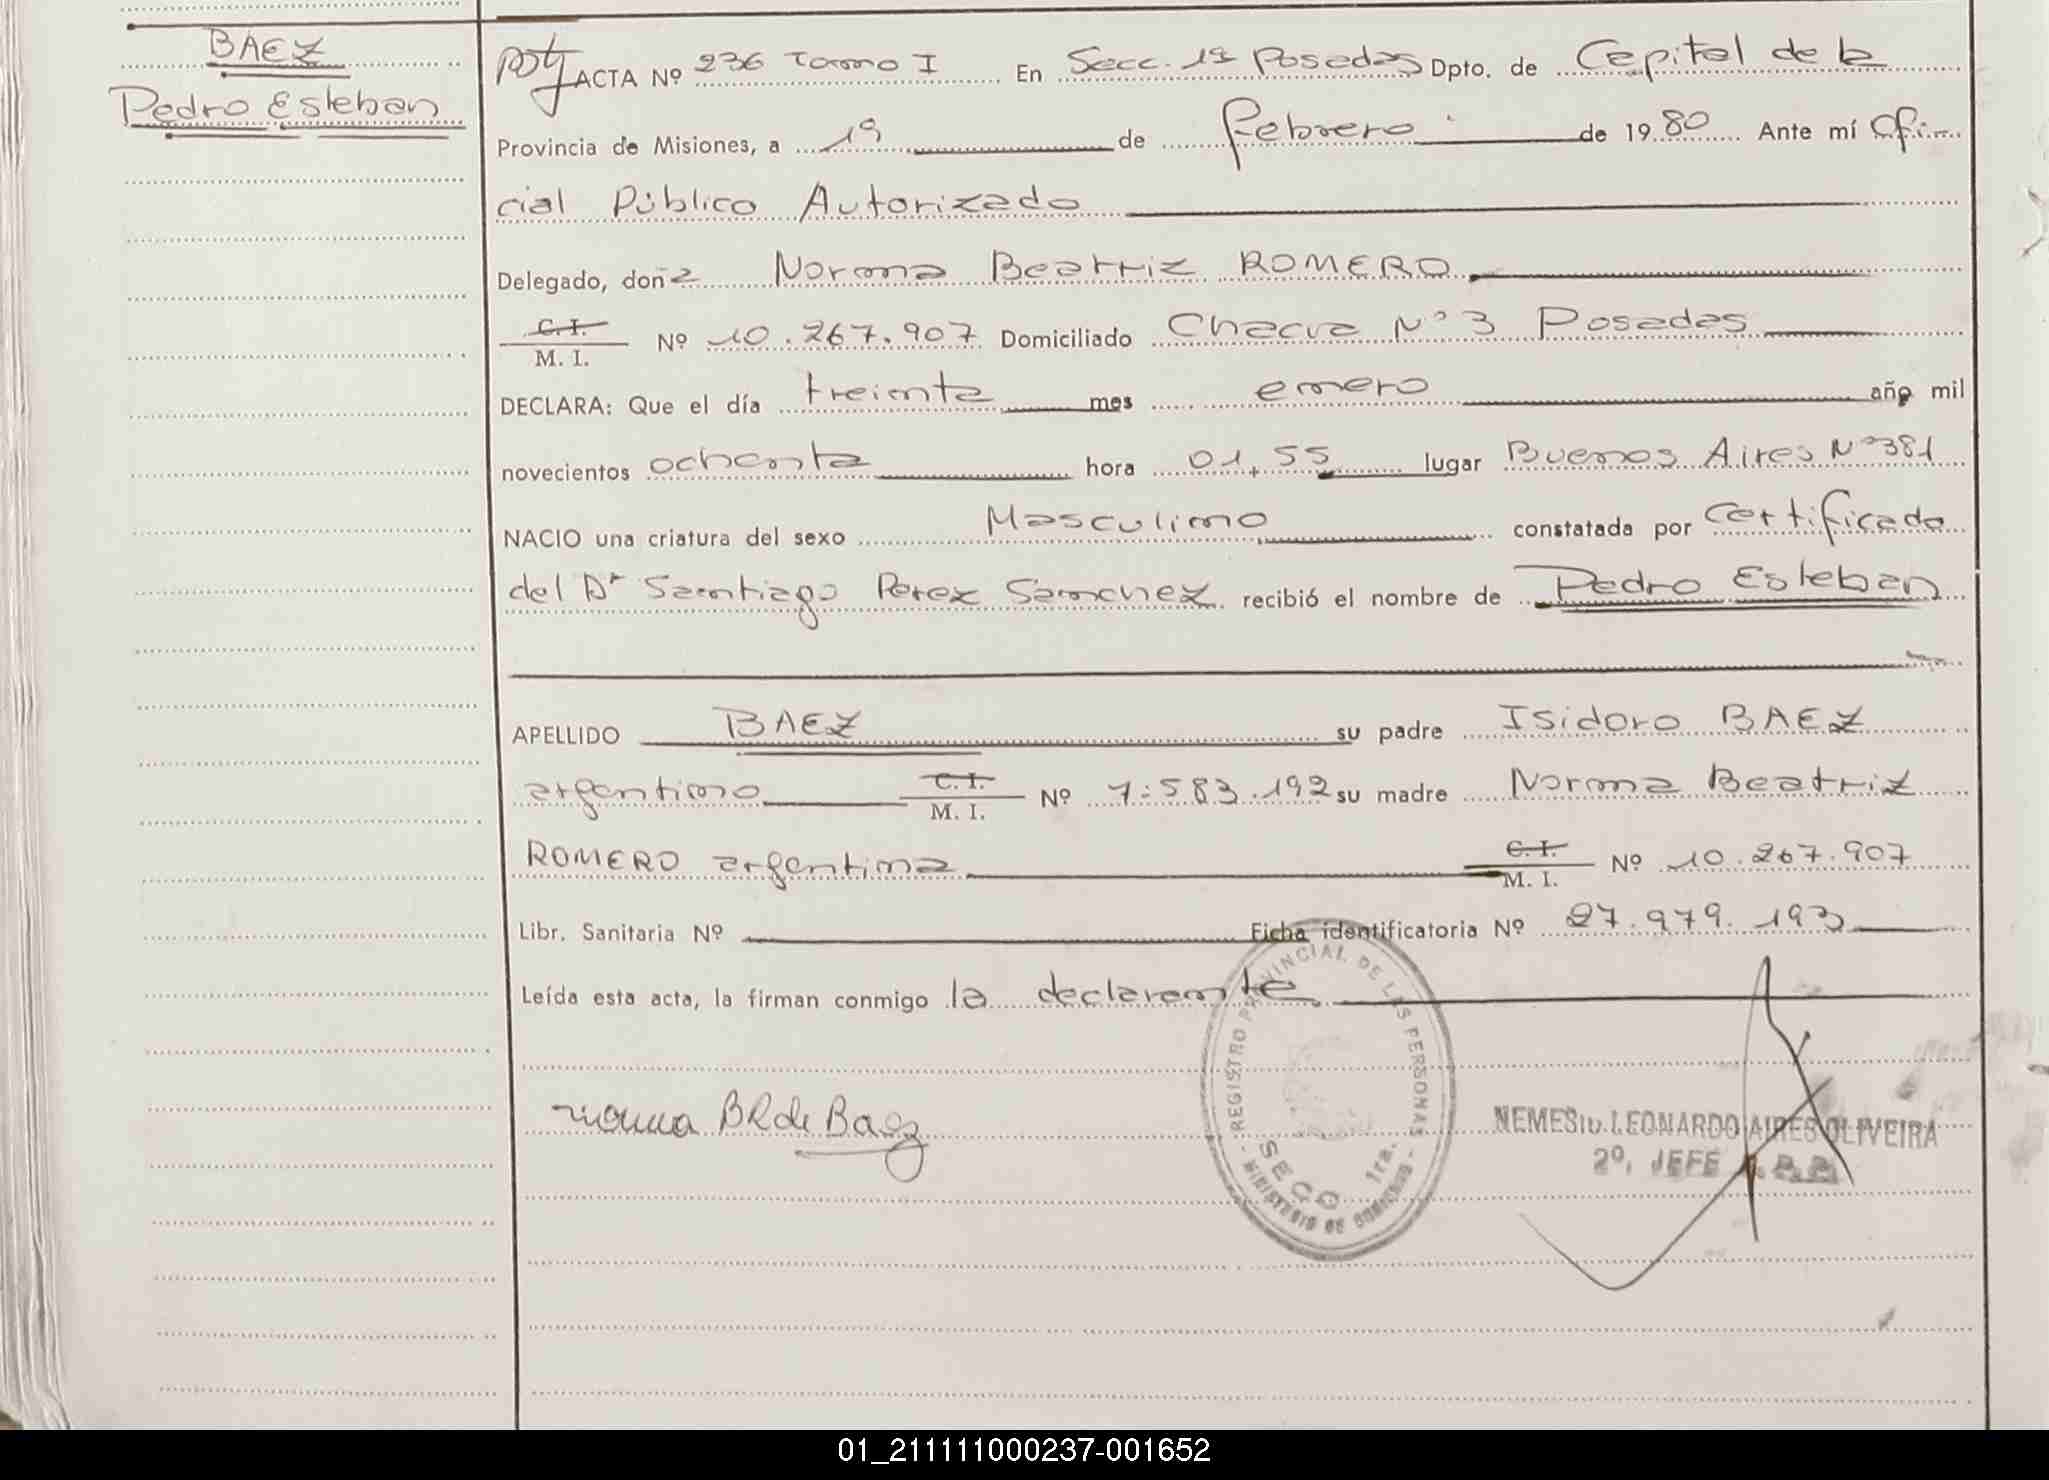 BAEZ
Pedro Esteban
ACTA Nº 236 Tomo I En Secc. 1ª Posadas Dpto. de Capital de la
Provincia de Misiones, a 19 de febrero de 1980 Ante mí Ofi-
cial Público Autorizado
Delegado, doña Norma Beatriz ROMERO
C. I.
M. I. Nº 10.267.907 Domiciliado Chacra Nº 3 Posadas
DECLARA: Que el día treinta mes enero año mil
novecientos ochenta hora 01,55 lugar Buenos Aires Nº 381
NACIO una criatura del sexo Masculino constatada por Certificado
del Dr Santiago Perez Sanchez recibió el nombre de Pedro Esteban
APELLIDO BAEZ su padre Isidoro BAEZ
argentino C. I. M. I. Nº 7.583.192 su madre Norma Beatriz
ROMERO argentina C. I. M. I. Nº 10.267.907
Libr. Sanitaria Nº Ficha identificatoria Nº 27.979.193
Leída esta acta, la firman conmigo la declarante
REGISTRO PROVINCIAL DE LAS PERSONAS
SECC 1ra.
MINISTERIO DE GOBIERNO
Norma BR de Baez
NEMESIO LEONARDO AIRES OLIVEIRA
2º. JEFE
01_211111000237-001652